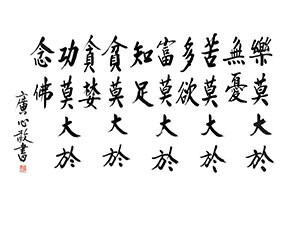 樂莫大於
無憂
苦莫大於
多欲
富莫大於
知足
貧莫大於
貪婪
功莫大於
念佛
廣心敬書